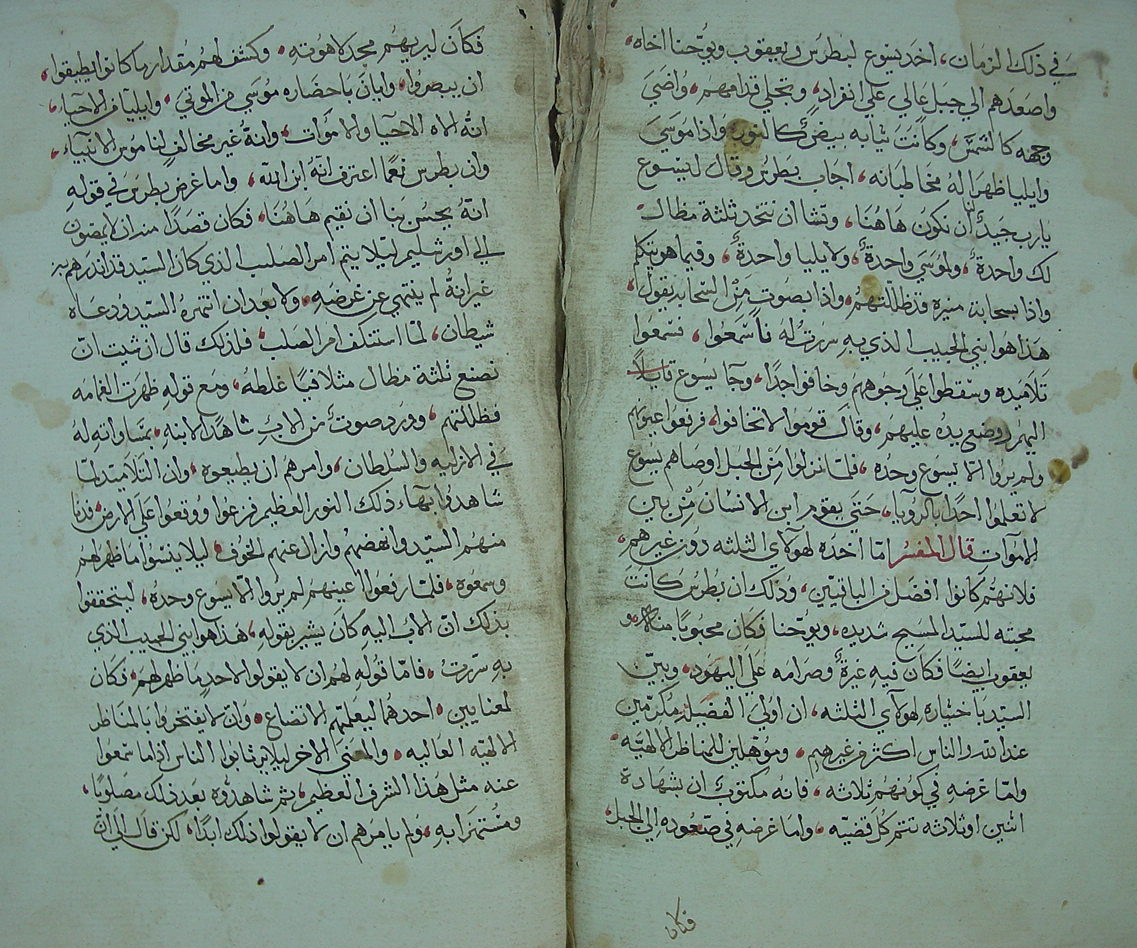 في ذلك الزمان، اخذ يسوع لبطرس ويعقوب ويوحنا اخاه،
واصعدهم الي جبل عالي علي انفراد، وتجلي قدامهم، واضيَ
وجهه كالشمس، وكانت ثيابه بيضٌ كالنور واذا موسيَ
وايليا ظهرا له مخاطبانه، اجاب بطرس وقال ليسوع
يارب جيدٌ ان نكون هاهنا، وتشا ان نتخد ثلثة مظال
لك واحدة، ولموسيَ واحدة، ولايليا واحدة، وفيما هو يتكلم
واذا سحابة منيره قد ظللتهم، واذا بصوت من السحابه يقول،
هذا هو ابني الحبيب الذي به سررت له فاسمعوا، فسمعوا
تلاميده وسقطوا علي وجوههم وخافوا جدا، وجا يسوع قايلاً
اليهم ووضع يده عليهم، وقال قوموا لا تخافوا، فرفعوا عيونهم
ولم يروا الا يسوع وحده، فلما نزلوا من الجبل اوصاهم يسوع
لا تعلموا احدًا بالرويا، حتي يقوم ابن الانسان من بين
الاموات قال المفسر اما اخده لهولاي الثلثه دون غيرهم،
فلانهم كانوا افضل من الباقيين، وذلك ان بطرس كانت
محبته للسيد المسيح شديده، ويوحنا فكان محبوبًا منه
يعقوب ايضًا فكان فيه غيرة وصرامه علي اليهود، وبين
السيد باختياره لهولاي الثلثه، ان اولي الفضل مكرمين
عند الله والناس اكثر من غيرهم، وموهلين للمناظر الالهيه،
واما غرضه في كونهم ثلاثه، فانه مكتوبٌ ان بشهادة
اثنين او ثلاثه تتم كل قضيه، واما غرضه في صعوده الي الجبل،
فكان
فكان ليريهم مجد لاهوته، وكشف لهم مقدار ما كانوا يطيقوا،
ان يبصروا، وابان باحضاره موسي من الموتي، وايليا من الاحيا،
انه الاه الاحيا والاموات، وانه غير مخالفٍ لناموس الانبياء،
وان بطرس نعما اعترف انه ابن الله، واما غرض بطرس في قوله
انه يحسن بنا ان نقيم هاهنا، فكان قصدًا منه ان لا يمضون
الي اورشليم ليلا يتم امر الصلب الذي كان السيد قد انذرهم به
غير انه لم ينتهي عن غرضه، ولا بعد ان انتهره السيد ودعاه
شيطان، لما استكف امر الصلب، فلذلك قال ان شيت ان
نصنع ثلثة مظال مثلا فبيا غلطه، ومع قوله ظهرت الغمامه
فظللتهم، وورد صوت من الاب شاهدًا لابنه، بمساواته له
في الازليه والسلطان، وامرهم ان يطيعوه، وان التلاميد لما
شاهدوا بهاء ذلك النور العظيم فزعوا ووقعوا علي الارض، فدنا
منهم السيد وانهضهم وازال عنهم الخوف، ليلا ينسوا ما ظهر لهم
وسمعوه، فلما رفعوا اعينهم لم يروا الا يسوع وحده، ليتحققوا
بذلك ان الاب اليه كان يشير بقوله، هذا هو ابني الحبيب الذي
به سررت، فاما قوله لهم ان لا يقولوا لاحدٍ ما ظهر لهم، فكان
لمعنايين، احدهما ليعلمهم الاتضاع، وان لا يفتخروا بالمناظر
الالهيه العاليه، والمعني الاخر ليلا يرتابوا الناس اذا ما سمعوا
عنه مثل هذا الشرف العظيم، ثم شاهدوه بعد ذلك مصلوبًا،
ومستهزا به، ولم يامرهم ان لا يقولوا ذلك ابدًا، لكن قال الي ان